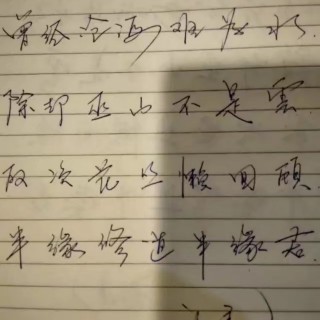 曾经沧海难为水.
除却巫山不是雲.
取次花丛懒回顾.
半缘修道半缘君.